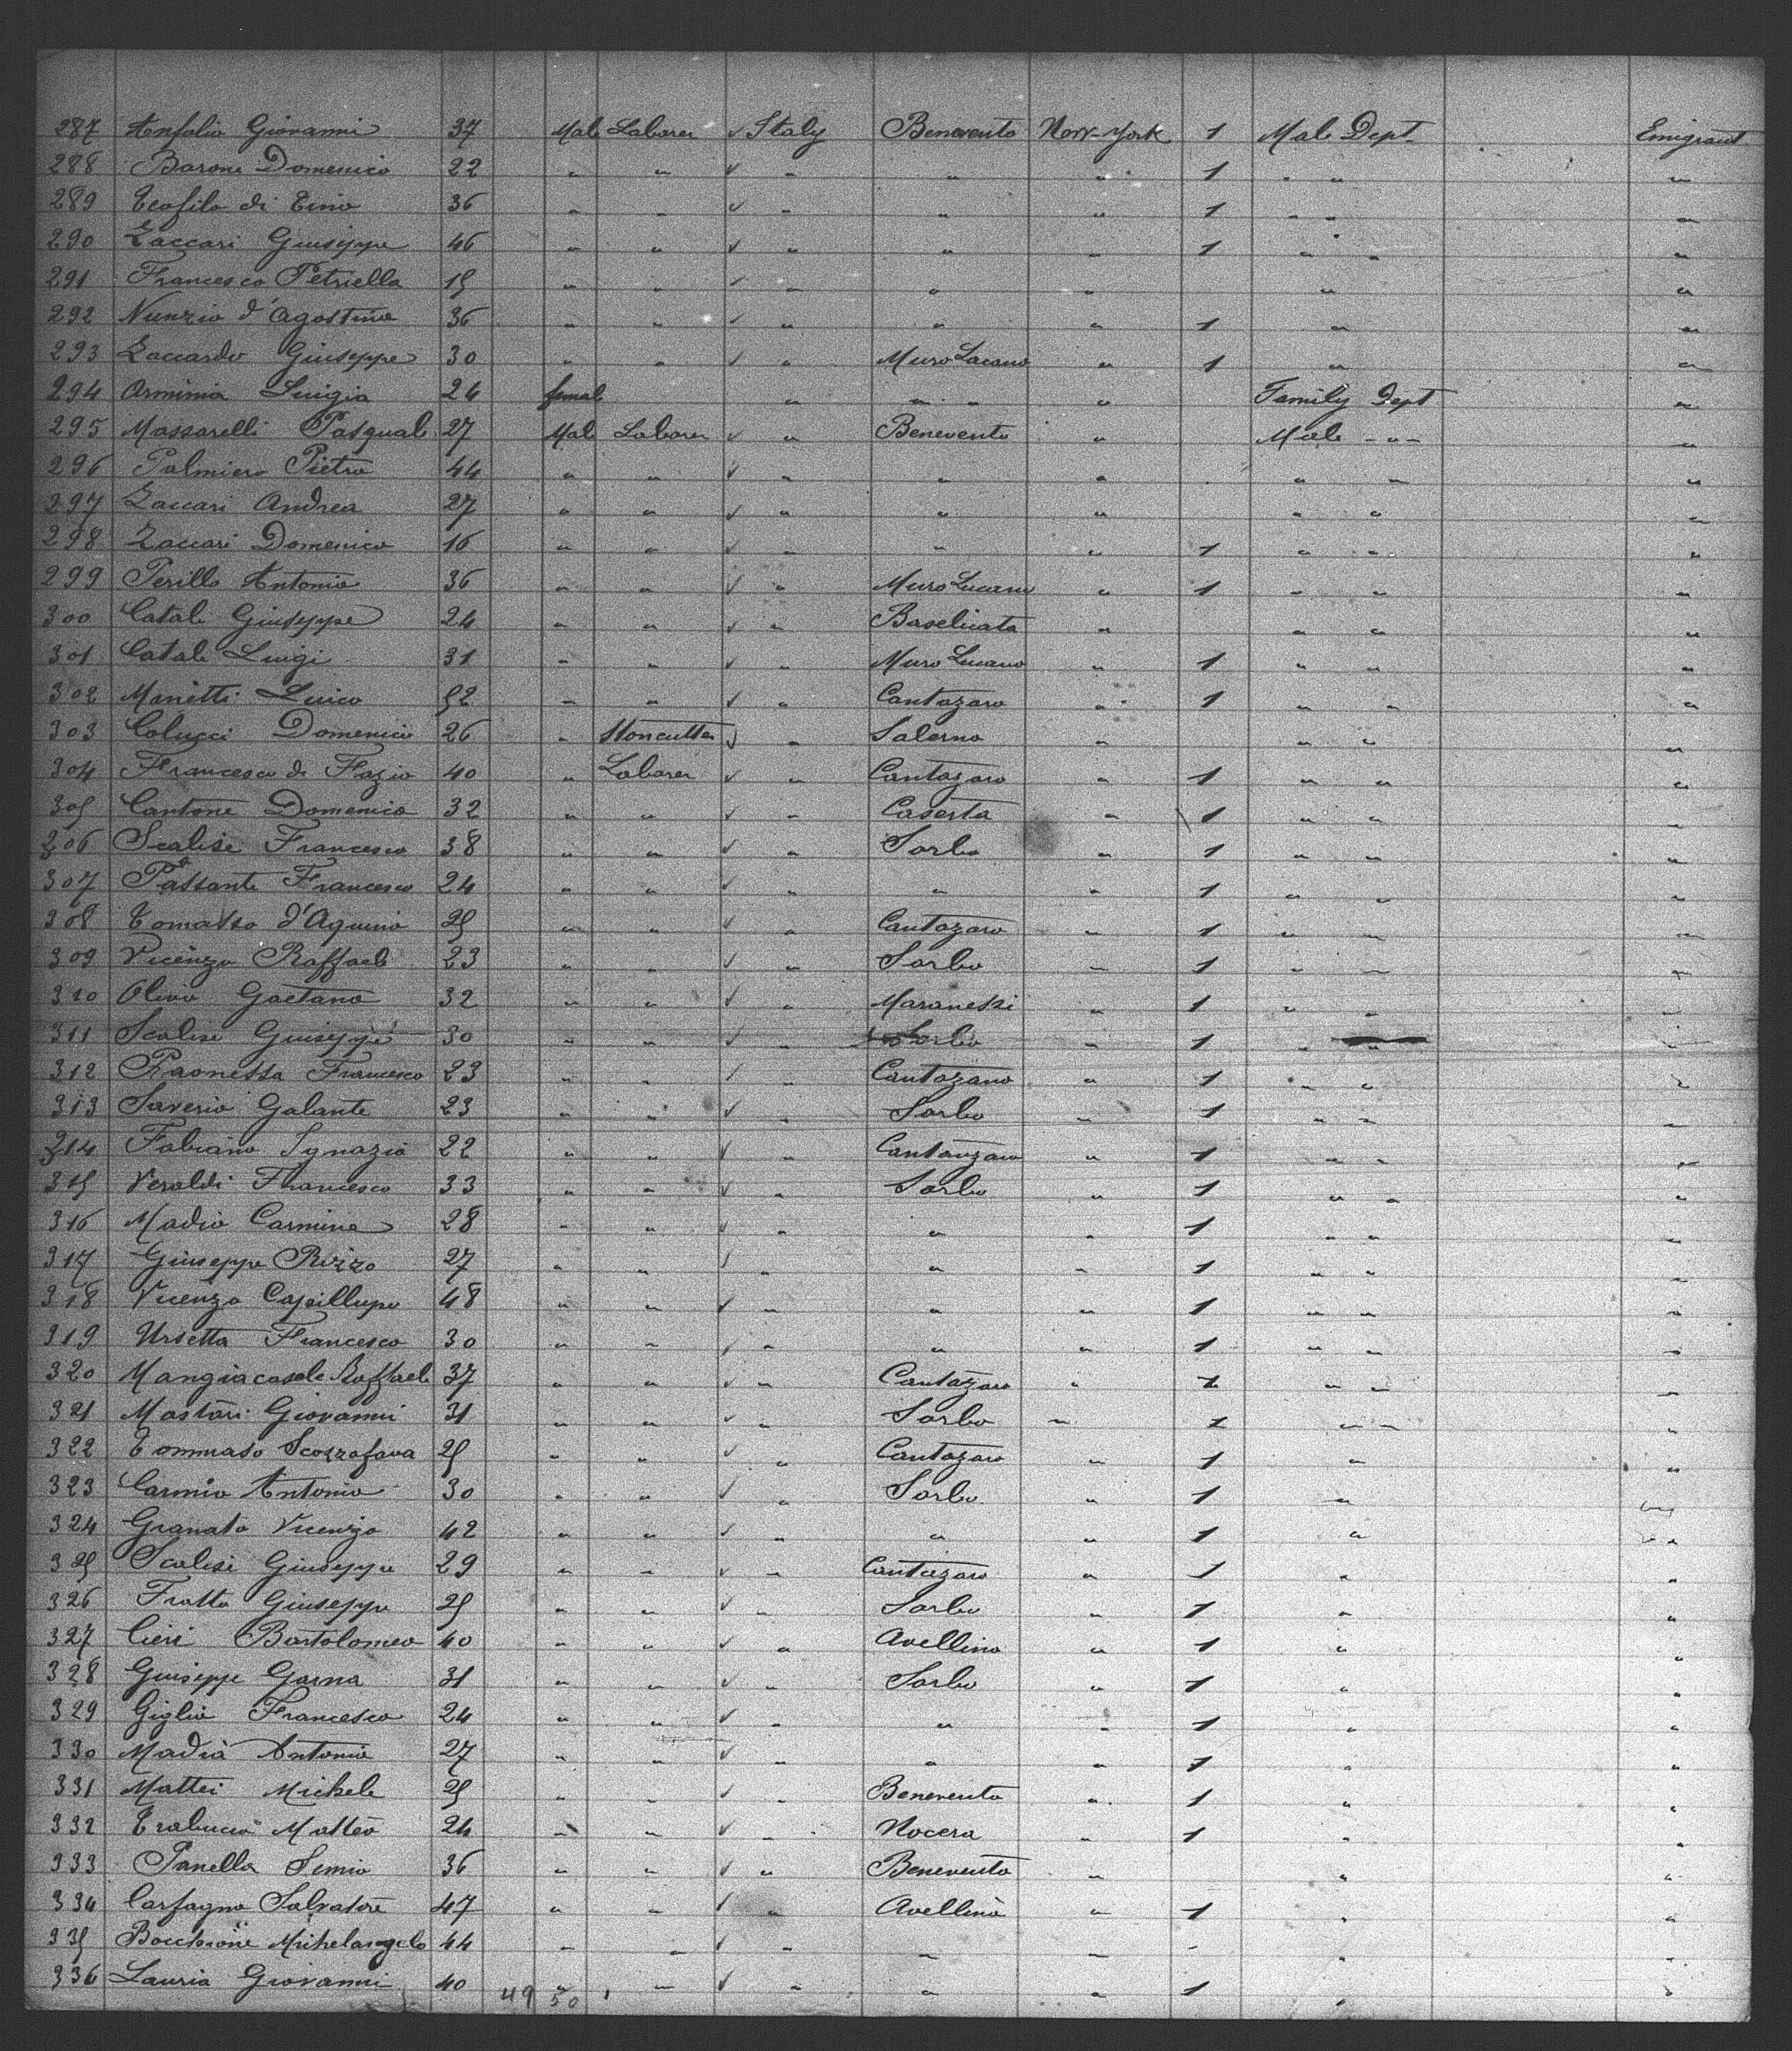 287 Anfolio Giovanni 37 Male Laborer ✓ Italy Benevento New-York 1 Male Dept Emigrant
288 Barone Domenico 22 " " ✓ " " " 1 " " "
289 Teofilo di Tinio 36 " " ✓ " " " 1 " " "
290 Zaccari Giuseppe 46 " " ✓ " " " 1 " " "
291 Francesco Petriella 15 " " ✓ " " " " "
292 Nunzio d'Agostino 36 " " ✓ " " " 1 " "
293 Zaccardo Giuseppe 30 " " ✓ " Muro Lucano " 1 " "
294 Arminia Luigia 24 female " " " " Family Dept "
295 Massarelli Pasquale 27 Male Laborer ✓ " Benevento " Male " "
296 Palmiero Pietro 44 " " ✓ " " " " "
297 Zaccari Andrea 27 " " ✓ " " " " " "
298 Zaccari Domenico 16 " " ✓ " " " 1 " " "
299 Perillo Antonio 36 " " ✓ " Muro Lucano " 1 " " "
300 Catale Giuseppe 24 " " ✓ " Baselicata " " " "
301 Catale Luigi 31 " " ✓ " Muro Lucano " 1 " " "
302 Minetti Luico 52 " " ✓ " Cantazaro " 1 " " "
303 Colucci Domenico 26 " Stoncutter ✓ " Salerno " " " "
304 Francesco di Fazio 40 " Laborer ✓ " Cantazaro " 1 " " "
305 Cantone Domenico 32 " " ✓ " Caserta " 1 " " "
306 Scalise Francesco 38 " " ✓ " Sorbo " 1 " " "
307 Passante Francesco 24 " " ✓ " " " 1 " " "
308 Tomasso d'Aquino 25 " " ✓ " Cantazaro " 1 " " "
309 Vicenzo Raffaele 23 " " ✓ " Sorbo " 1 " " "
310 Olivo Gaetano 32 " " ✓ " Maranessi " 1 " " "
311 Scalise Giuseppe 30 " " ✓ " Sorbo " 1 " " "
312 Raonessa Francesco 23 " " ✓ " Cantazano " 1 " " "
313 Saverio Galante 23 " " ✓ " Sorbo " 1 " " "
314 Fabiano Ignazio 22 " " ✓ " Cantanzaro " 1 " " "
315 Veraldi Francesco 33 " " ✓ " Sorbo " 1 " " "
316 Madio Carmine 28 " " ✓ " " " 1 " " "
317 Giuseppe Rizzo 27 " " ✓ " " " 1 " " "
318 Vicenzo Capillupo 48 " " ✓ " " " 1 " " "
319 Ursetta Francesco 30 " " ✓ " " " 1 " " "
320 Mangiacasale Raffaele 37 " " ✓ " Cantazaro " 1 " " "
321 Mastari Giovanni 31 " " ✓ " Sorbo " 1 " " "
322 Tommaso Scozzafava 25 " " ✓ " Cantazaro " 1 " "
323 Carmio Antonio 30 " " ✓ " Sorbo " 1 " "
324 Granato Vicenzo 42 " " ✓ " " " 1 " "
325 Scalisi Giuseppe 29 " " ✓ " Cantazaro " 1 " "
326 Fratto Giuseppe 25 " " ✓ " Sorbo " 1 " "
327 Cieri Bartolomeo 40 " " ✓ " Avellino " 1 " "
328 Giuseppe Garna 31 " " ✓ " Sorbo " 1 " "
329 Giglio Francesco 24 " " ✓ " " " 1 " "
330 Madia Antonio 27 " " ✓ " " " 1 " "
331 Mattei Michele 25 " " ✓ " Benevento " 1 " "
332 Trabucco Matteo 24 " " ✓ " Nocera " 1 " "
333 Panella Simio 36 " " ✓ " Benevento " " "
334 Carfagno Salvatore 47 " " ✓ " Avellino " 1 " "
335 Bocchione Michelangelo 44 " " ✓ " " " " "
336 Lauria Giovanni 40 " " ✓ " " " 1 " "
49 50 1